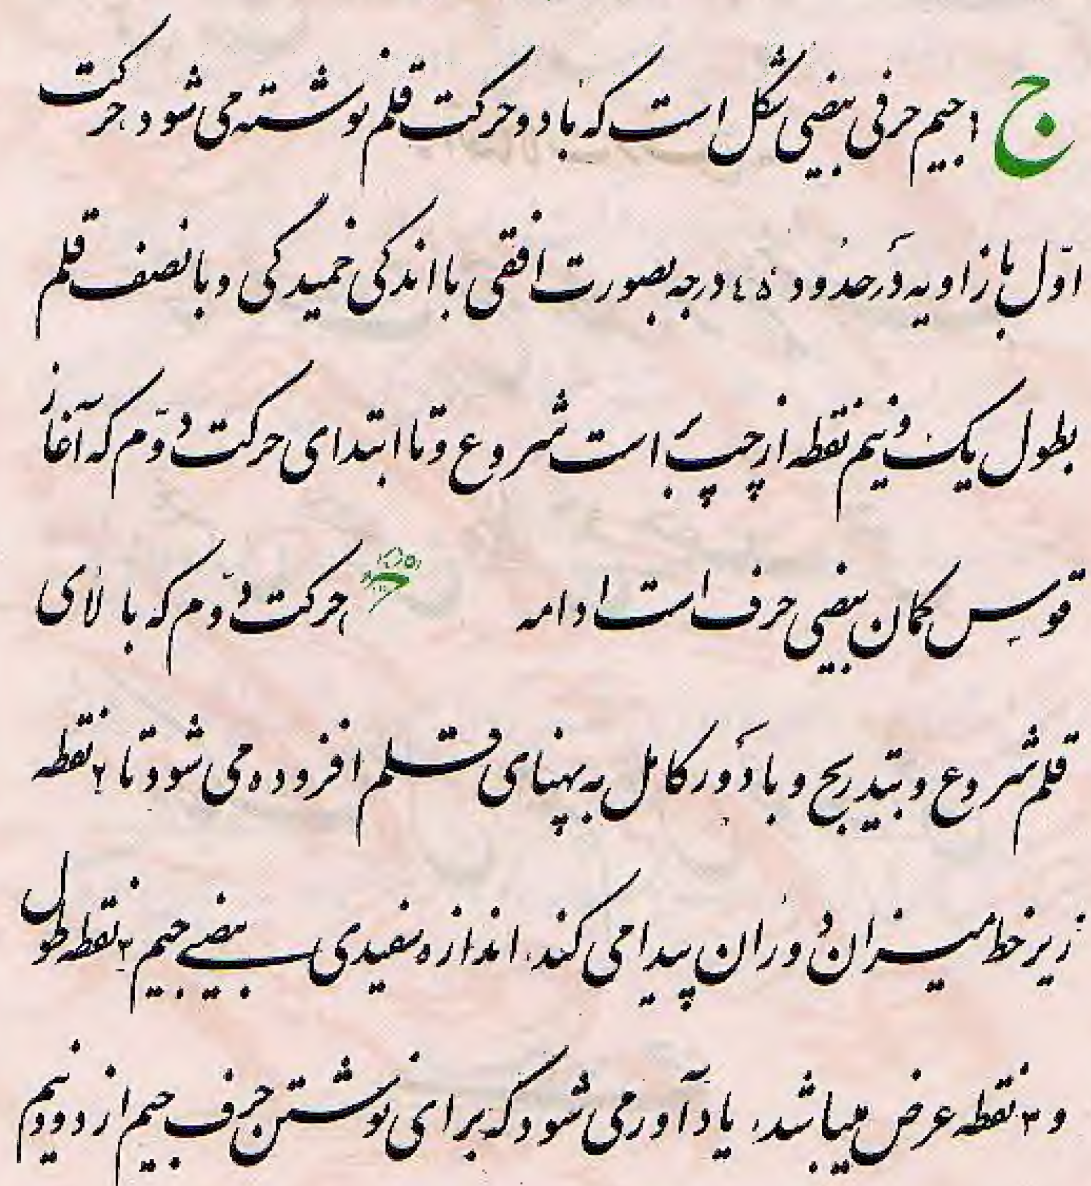 ج ۱ جیم حرفی بیضی شکل است که با دو حرکت قلم نوشته می شود، حرکت
اوّل با زاویه در حدود ۴۵ درجه بصورت افقی با اندکی خمیدگی و با نصف قلم
بطول یک و نیم نقطه از چپ براست شروع و تا ابتدای حرکت دوّم که آغاز
قوس کمان بیضی حرف است ادامه حرکت دوّم که با لای
قلم شروع و بتدریج و با دَور کامل به پهنای قلم افزوده می شود تا ۲ نقطه
زیر خط میزان دوران پیدا می کند، اندازه سفیدی بیضی جیم ۳ نقطه طول
و ۳ نقطه عرض میباشد، یادآور می شود که برای نوشتن حرف جیم از دو و نیم